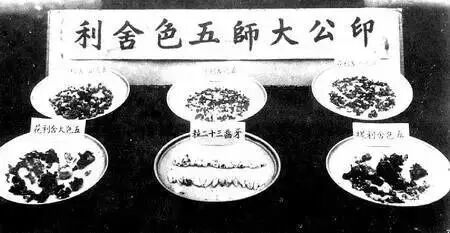 印公大師五色舍利
五色舍利塊
牙齒三十二粒
五色大舍利花